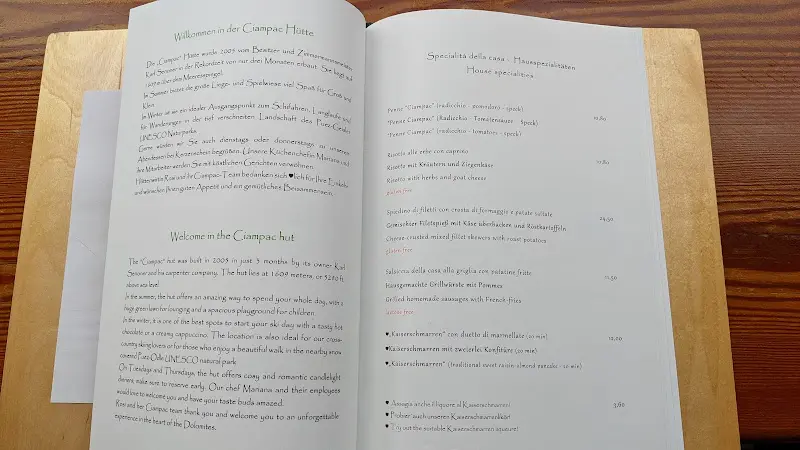 Willkommen in der Ciampac Hütte
Die „Ciampac" Hütte wurde 2005 vom Besitzer und Zimmermannmeister
Karl Senoner in der Rekordzeit von nur drei Monaten erbaut. Sie liegt auf
über dem Meeresspiegel.
Im Sommer bietet die große Liege- und Spielwiese viel Spaß für Groß und
Klein.
Im Winter ist wir ein idealer Ausgangspunkt zum Schifahren, Langlaufen und
für Wanderungen in der tief verschneiten Landschaft des Puez-Geisler
UNESCO Naturparks.
Gerne würden wir Sie auch dienstags oder donnerstags zu unserem
Abendessen bei Kerzenschein begrüßen. Unsere Küchenchefin Mariana und
ihre Mitarbeiter werden Sie mit köstlichen Gerichten verwöhnen.
Hüttenwirtin Rosi und Ihr Ciampac-Team bedanken sich ♥lich für Ihre Einkehr
und wünschen Ihnen guten Appetit und ein gemütliches Beisammensein.
Welcome in the Ciampac hut
The "Ciampac" hut was built in 2005 in just 3 months by its owner Karl
Senoner and his carpenter company. The hut lies at 1609 meters, or 5280 ft.
above sea level
In the summer, the hut offers an amazing way to spend your whole day, with a
huge green lawn for lounging and a spacious playground for children.
In the winter, it is one of the best spots to start your ski day with a tasty hot
chocolate or a creamy cappuccino. The location is also ideal for our cross-
country skiing lovers or for those who enjoy a beautiful walk in the nearby snow
covered Puez-Odle UNESCO natural park
On Tuesdays and Thursdays, the hut offers cosy and romantic candlelight
dinners, make sure to reserve early. Our chef Mariana and their employees
would love to welcome you and have your taste buds amazed.
Rosi and her Ciampac team thank you and welcome you to an unforgettable
experience in the heart of the Dolomites.
Specialità della casa - Hausspezialitäten
House specialities
Penne "Ciampac" (radicchio - pomodoro - speck)
"Penne Ciampac" (Radicchio - Tomatensauce - Speck) 11.80
"Penne Ciampac" (radicchio - tomatoes - speck)
Risotto alle erbe con caprino
Risotto mit Kräutern und Ziegenkäse 11.80
Risotto with herbs and goat cheese
gluten free
Spiedino di filetti con crosta di formaggio e patate saltate
Gemischter Filetspieß mit Käse überbacken und Röstkartoffeln 24,50
Cheese crusted mixed fillet skewers with roast potatoes
gluten free
Salsiccia della casa alla griglia con patatine fritte
Hausgemachte Grillwürste mit Pommes 11,50
Grilled homemade sausages with French-fries
lactose free
♥„Kaiserschmarren" con duetto di marmellate (20 min) 12,00
♥Kaiserschmarren mit zweierlei Konfitüre (20 min)
♥„Kaiserschmarren" (traditional sweet raisin almond pancake - 20 min)
♥ Assaggia anche il liquore al Kaiserschmarren! 3,60
♥ Probier auch unseren Kaiserschmarrenlikör!
♥ Try out the suitable Kaiserschmarren liqueur!